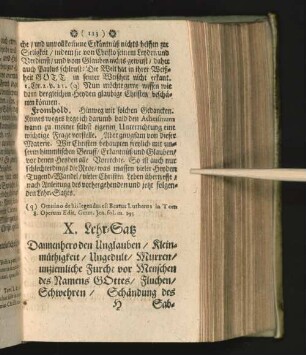 ( 113 )
che / und unvollkom̃ene Erkäntnüß nichts helffen zur
Seligkeit / indem sie von Christo seinem Leyden und
Verdienst / und vom Glauben nichts gewust / dahero
auch Paulus schleust: Die Welt hat in ihrer Weiß-
heit GOTT in seiner Weißheit nicht erkant.
1. Cor. 1. v. 21. (q) Nun möchte gerne wissen wie
dann dergleichen Heyden gläubige Christen beschä-
men können.
Fromhold. Hinweg mit solchen Gedancken.
warum zu meiner selbst eigenen Unterrichtung eine
wichtige Frage vorfielle. Aber genug von dieser
Materie. Wir Christen behaupten freylich mit unse-
vor denen Heyden alle Vorrechte. So ist auch nur
schlechterdings die Rede / was massen vieler Heyden
Tugend-Wandel / vieler Christen Leben übertreffe /
nach Anleitung des vorhergehenden und jetzt folgen-
den Lehr-Satzes.
8. Operum Edit. Germ. Jen. fol. m. 295
X. Lehr-Satz
Dannenhero den Unglauben / Klein-
müthigkeit / Ungedult / Murren /
unziemliche Furcht vor Menschen
des Namens GOttes / Fluchen /
Schwehren / Schändung des
H Sab-